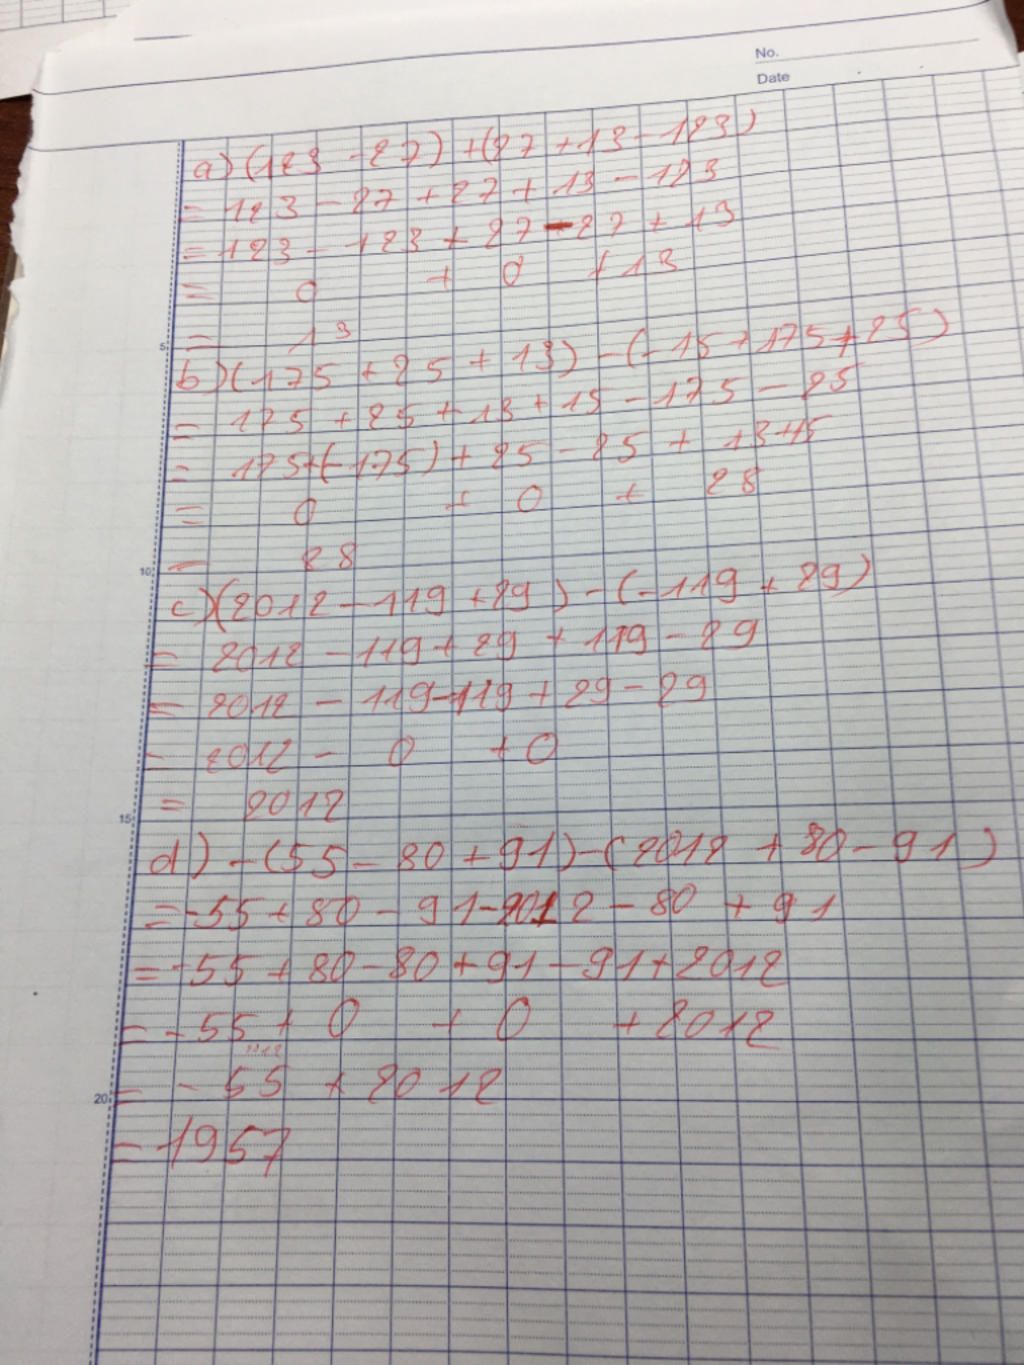 No.
Date
a) (123 - 27) + (27 + 13 - 123)
= 123 - 27 + 27 + 13 - 123
= 123 - 123 + 27 - 27 + 13
= 0 + 0 + 13
= 13
5
b) (175 + 25 + 13) - (-15 + 175 + 25)
= 175 + 25 + 13 + 15 - 175 - 25
= 175 + (-175) + 25 - 25 + 13 + 15
= 0 + 0 + 28
= 28
10
c) (2012 - 119 + 29) - (-119 + 29)
= 2012 - 119 + 29 + 119 - 29
= 2012 - 119 - 119 + 29 - 29
= 2012 - 0 + 0
= 2012
15
d) - (55 - 80 + 91) - (2012 + 80 - 91)
= -55 + 80 - 91 - 2012 - 80 + 91
= -55 + 80 - 80 + 91 - 91 + 2012
= -55 + 0 + 0 + 2012
= -55 + 2012
20
= 1957